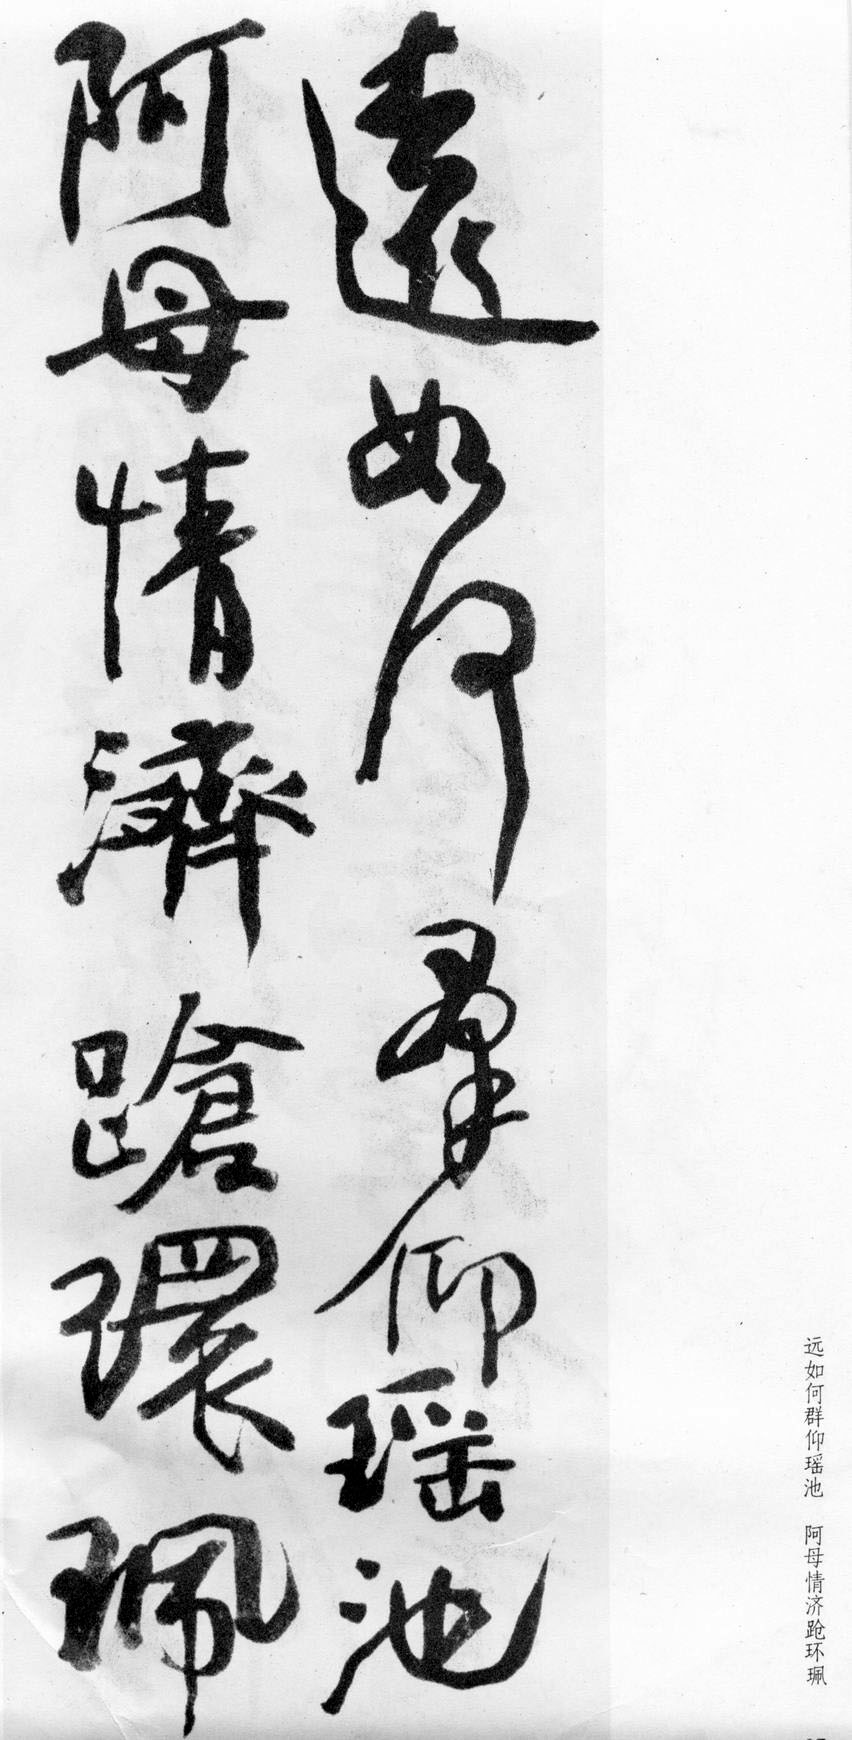 远如何群仰瑶池 阿母情济跄环珮
遠如何羣仰瑶池
阿母情濟蹌環珮